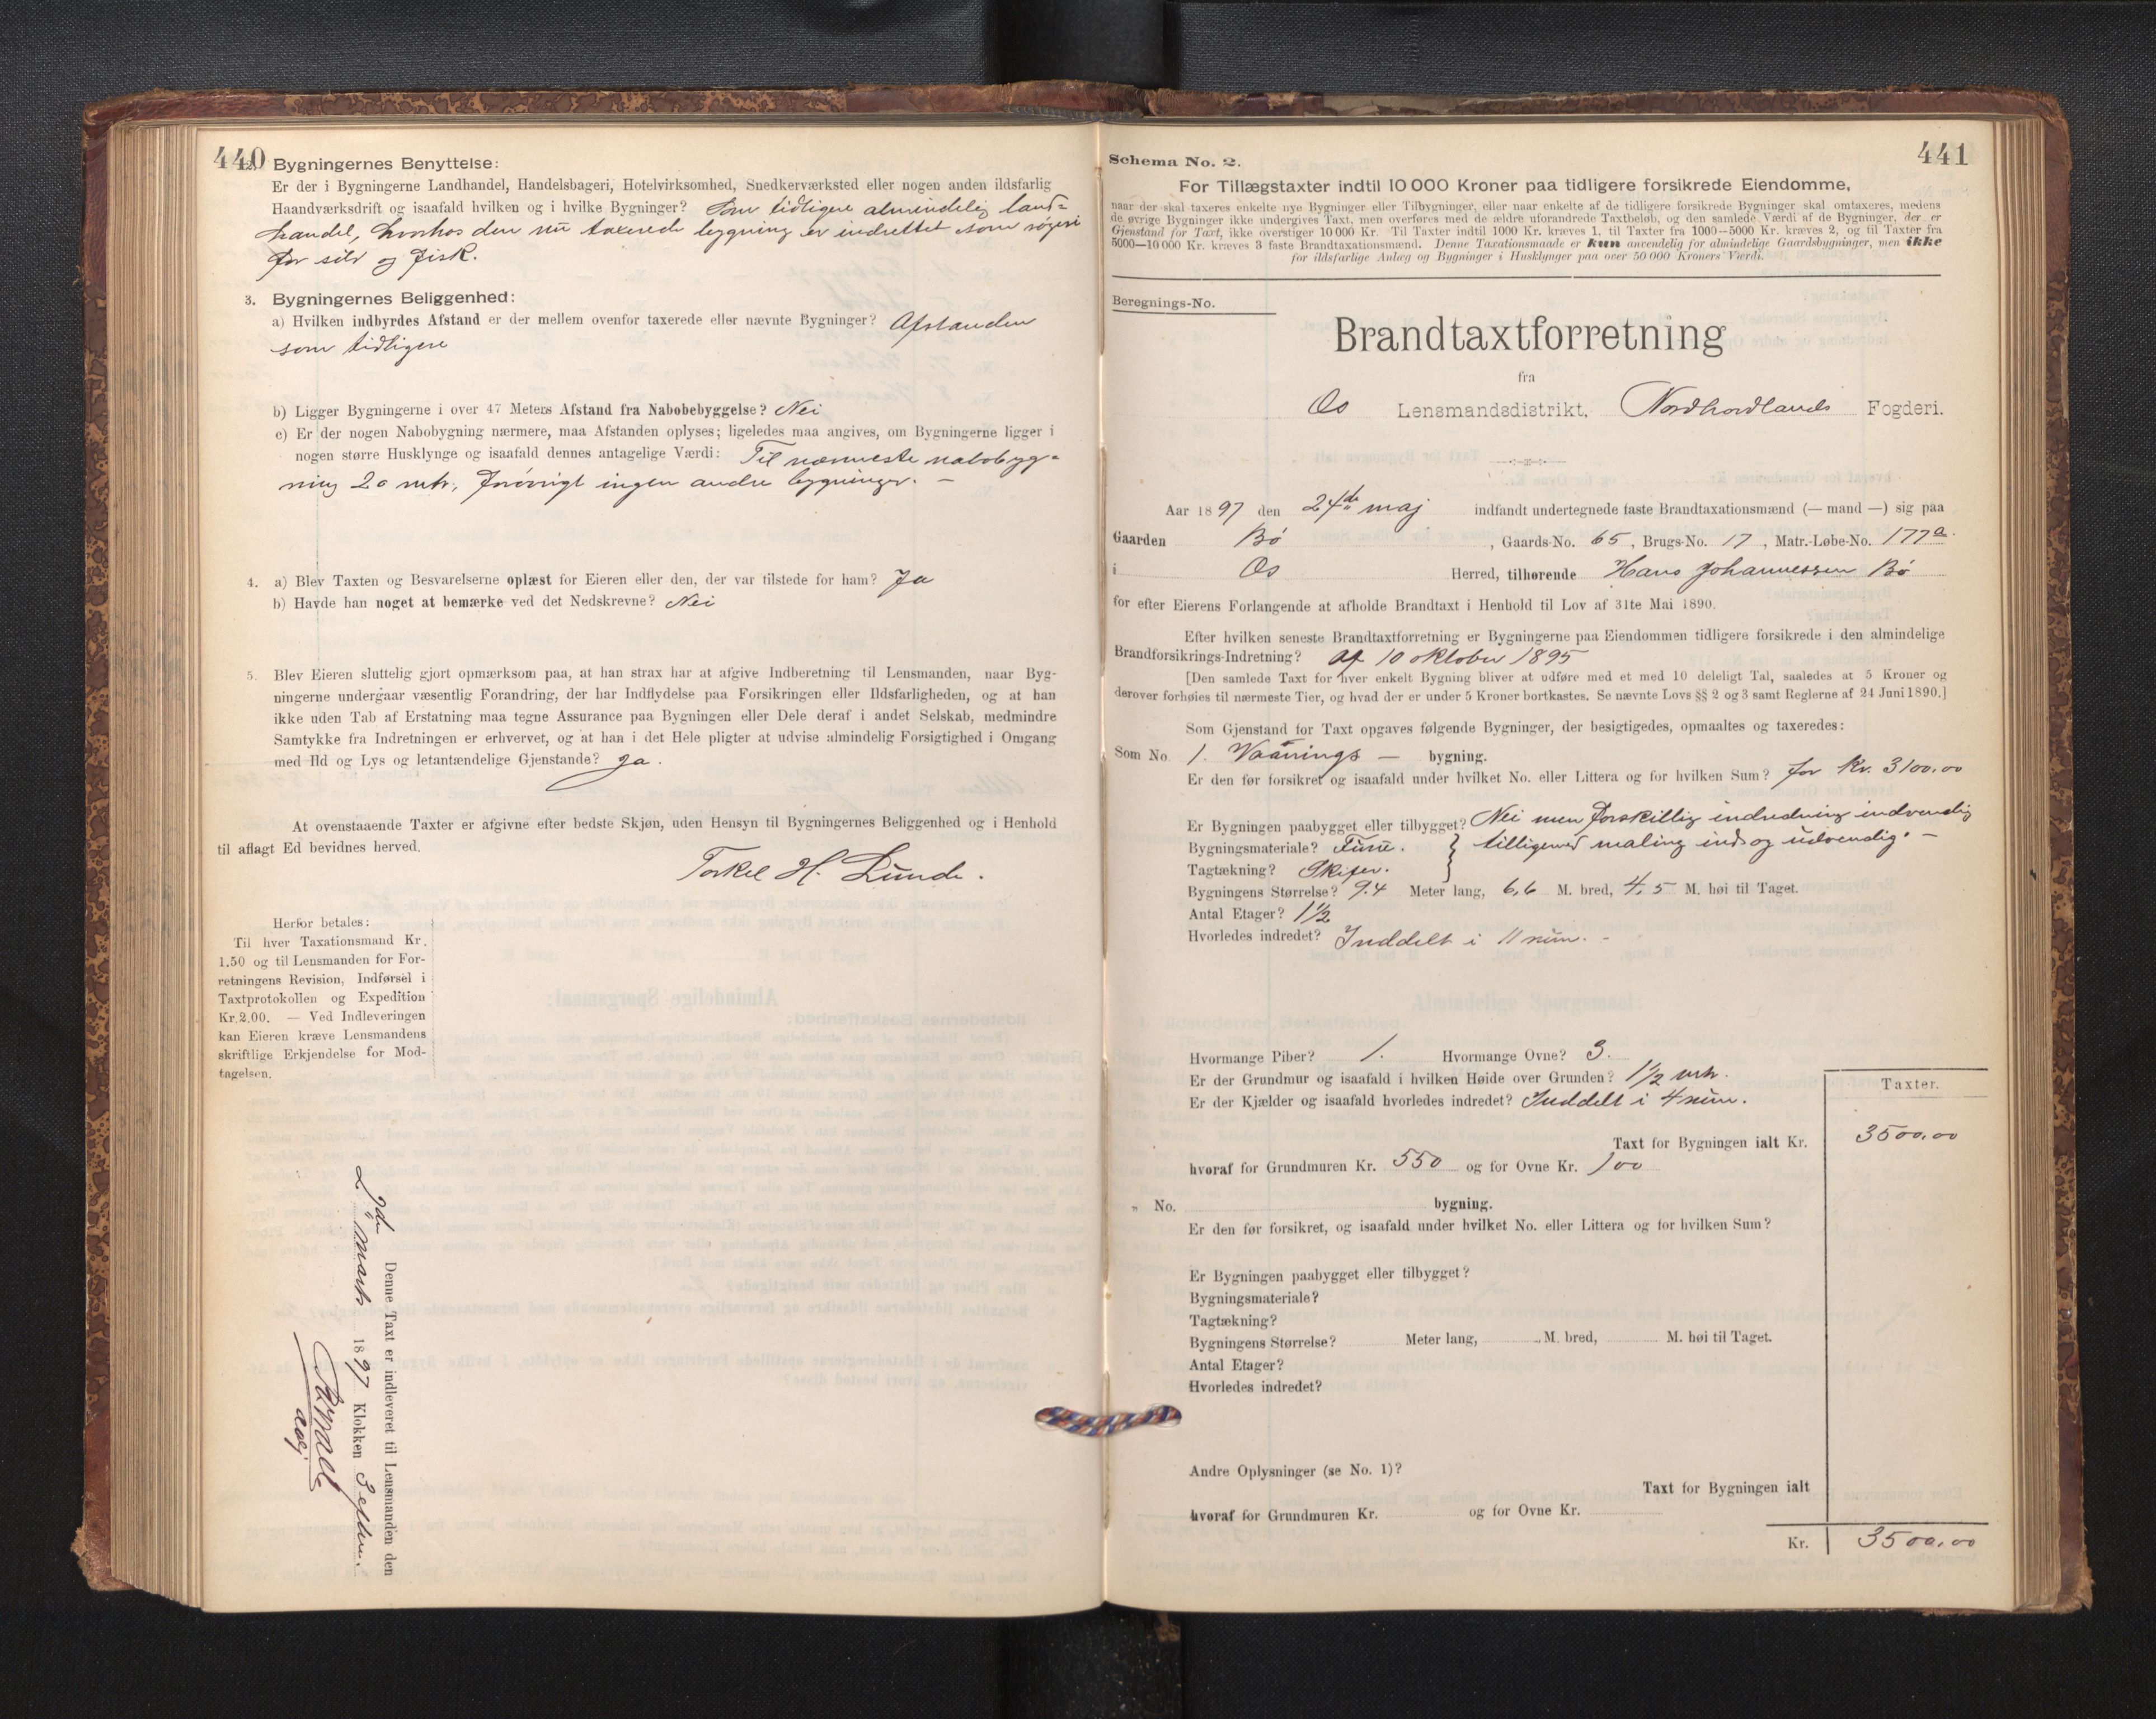 440
2. Bygningernes Benyttelse:
Er der i Bygningerne Landhandel, Handelsbageri, Hotelvirksomhed, Snedkerværksted eller nogen anden ildsfarlig
Haandværksdrift og isaafald hvilken og i hvilke Bygninger? Som tidligere almindelig land-
handel, hvorhos den nu taxerede bygning er indrettet som røgeri
for sild og fisk.
3. Bygningernes Beliggenhed:
a) Hvilken indbyrdes Afstand er der mellem ovenfor taxerede eller nævnte Bygninger? Afstanden
som tidligere
b) Ligger Bygningerne i over 47 Meters Afstand fra Nabobebyggelse? Nei
c) Er der nogen Nabobygning nærmere, maa Afstanden oplyses; ligeledes maa angives, om Bygningerne ligger i
nogen større Husklynge og isaafald dennes antagelige Værdi: Til nærmeste nabobyg-
ning 20 mtr, forøvrigt ingen andre bygninger. —
4. a) Blev Taxten og Besvarelserne oplæst for Eieren eller den, der var tilstede for ham? Ja
b) Havde han noget at bemærke ved det Nedskrevne? Nei
5. Blev Eieren sluttelig gjort opmærksom paa, at han strax har at afgive Indberetning til Lensmanden, naar Byg-
ningerne undergaar væsentlig Forandring, der har Indflydelse paa Forsikringen eller Ildsfarligheden, og at han
ikke uden Tab af Erstatning maa tegne Assurance paa Bygningen eller Dele deraf i andet Selskab, medmindre
Samtykke fra Indretningen er erhvervet, og at han i det Hele pligter at udvise almindelig Forsigtighed i Omgang
med Ild og Lys og letantændelige Gjenstande? Ja.
At ovenstaaende Taxter er afgivne efter bedste Skjøn, uden Hensyn til Bygningernes Beliggenhed og i Henhold
til aflagt Ed bevidnes herved.
Torkel H. Lunde.
Herfor betales:
Til hver Taxationsmand Kr.
1.50 og til Lensmanden for For-
retningens Revision, Indførsel i
Taxtprotokollen og Expedition
Kr. 2.00. — Ved Indleveringen
kan Eieren kræve Lensmandens
skriftlige Erkjendelse for Mod-
tagelsen.
Denne Taxt er indleveret til Lensmanden den
1897 Klokken 3 efterm.
441
Schema No. 2.
For Tillægstaxter indtil 10 000 Kroner paa tidligere forsikrede Eiendomme,
naar der skal taxeres enkelte nye Bygninger eller Tilbygninger, eller naar enkelte af de tidligere forsikrede Bygninger skal omtaxeres, medens
de øvrige Bygninger ikke undergives Taxt, men overføres med de ældre uforandrede Taxtbeløb, og den samlede Værdi af de Bygninger, der er
Gjenstand for Taxt, ikke overstiger 10 000 Kr. Til Taxter indtil 1000 Kr. kræves 1, til Taxter fra 1000—5000 Kr. kræves 2, og til Taxter fra
5000—10 000 Kr. kræves 3 faste Brandtaxationsmænd. Denne Taxationsmaade er kun anvendelig for almindelige Gaardsbygninger, men ikke
for ildsfarlige Anlæg og Bygninger i Husklynger paa over 50 000 Kroners Værdi.
Beregnings-No.
Brandtaxtforretning
fra
Os Lensmandsdistrikt, Nordhordlands Fogderi.
Aar 1897 den 24de maj indfandt undertegnede faste Brandtaxationsmænd (— mand —) sig paa
Gaarden Bø, Gaards-No. 65, Brugs-No. 17, Matr.-Løbe-No. 177a.
i Os Herred, tilhørende Hans Johannessen Bø
for efter Eierens Forlangende at afholde Brandtaxt i Henhold til Lov af 31te Mai 1890.
Efter hvilken seneste Brandtaxtforretning er Bygningerne paa Eiendommen tidligere forsikrede i den almindelige
Brandforsikrings-Indretning? af 10 oktober 1895
[Den samlede Taxt for hver enkelt Bygning bliver at udføre med et med 10 deleligt Tal, saaledes at 5 Kroner og
derover forhøies til nærmeste Tier, og hvad der er under 5 Kroner bortkastes. Se nævnte Lovs §§ 2 og 3 samt Reglerne af 24 Juni 1890.]
Som Gjenstand for Taxt opgaves følgende Bygninger, der besigtigedes, opmaaltes og taxeredes:
Som No. 1. Vaanings — bygning.
Er den før forsikret og isaafald under hvilket No. eller Littera og for hvilken Sum? for Kr. 3100,00
Er Bygningen paabygget eller tilbygget? Nei men forskillig indredning indvendig
Bygningsmateriale? Furu. } tilligemed maling ind og udvendig. —
Tagtækning? Skifer.
Bygningens Størrelse? 9.4 Meter lang, 6,6 M. bred, 4,5 M. høi til Taget.
Antal Etager? 1½
Hvorledes indredet? Inddelt i 11 rum. -
Hvormange Piber? 1. Hvormange Ovne? 3.
Er der Grundmur og isaafald i hvilken Høide over Grunden? 1½ mtr.
Er der Kjælder og isaafald hvorledes indredet? Inddelt i 4 rum.
Taxter.
Taxt for Bygningen ialt Kr. 3500,00
hvoraf for Grundmuren Kr. 550 og for Ovne Kr. 100
" No. bygning.
Er den før forsikret, og isaafald under hvilket No. eller Littera og for hvilken Sum?
Er Bygningen paabygget eller tilbygget?
Bygningsmateriale?
Tagtækning?
Bygningens Størrelse? Meter lang, M. bred, M. høi til Taget.
Antal Etager?
Hvorledes indredet?
Andre Oplysninger (se No. 1)?
Taxt for Bygningen ialt
hvoraf for Grundmuren Kr. og for Ovne Kr.
Kr. 3500,00